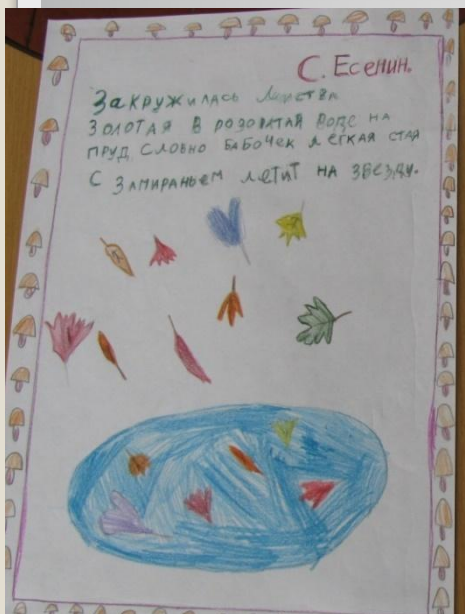 С. Есенин.
Закружилась листва
Золотая в розоватай воде на
пруд словно бабочек легкая стая
С замираньем летит на звезду.